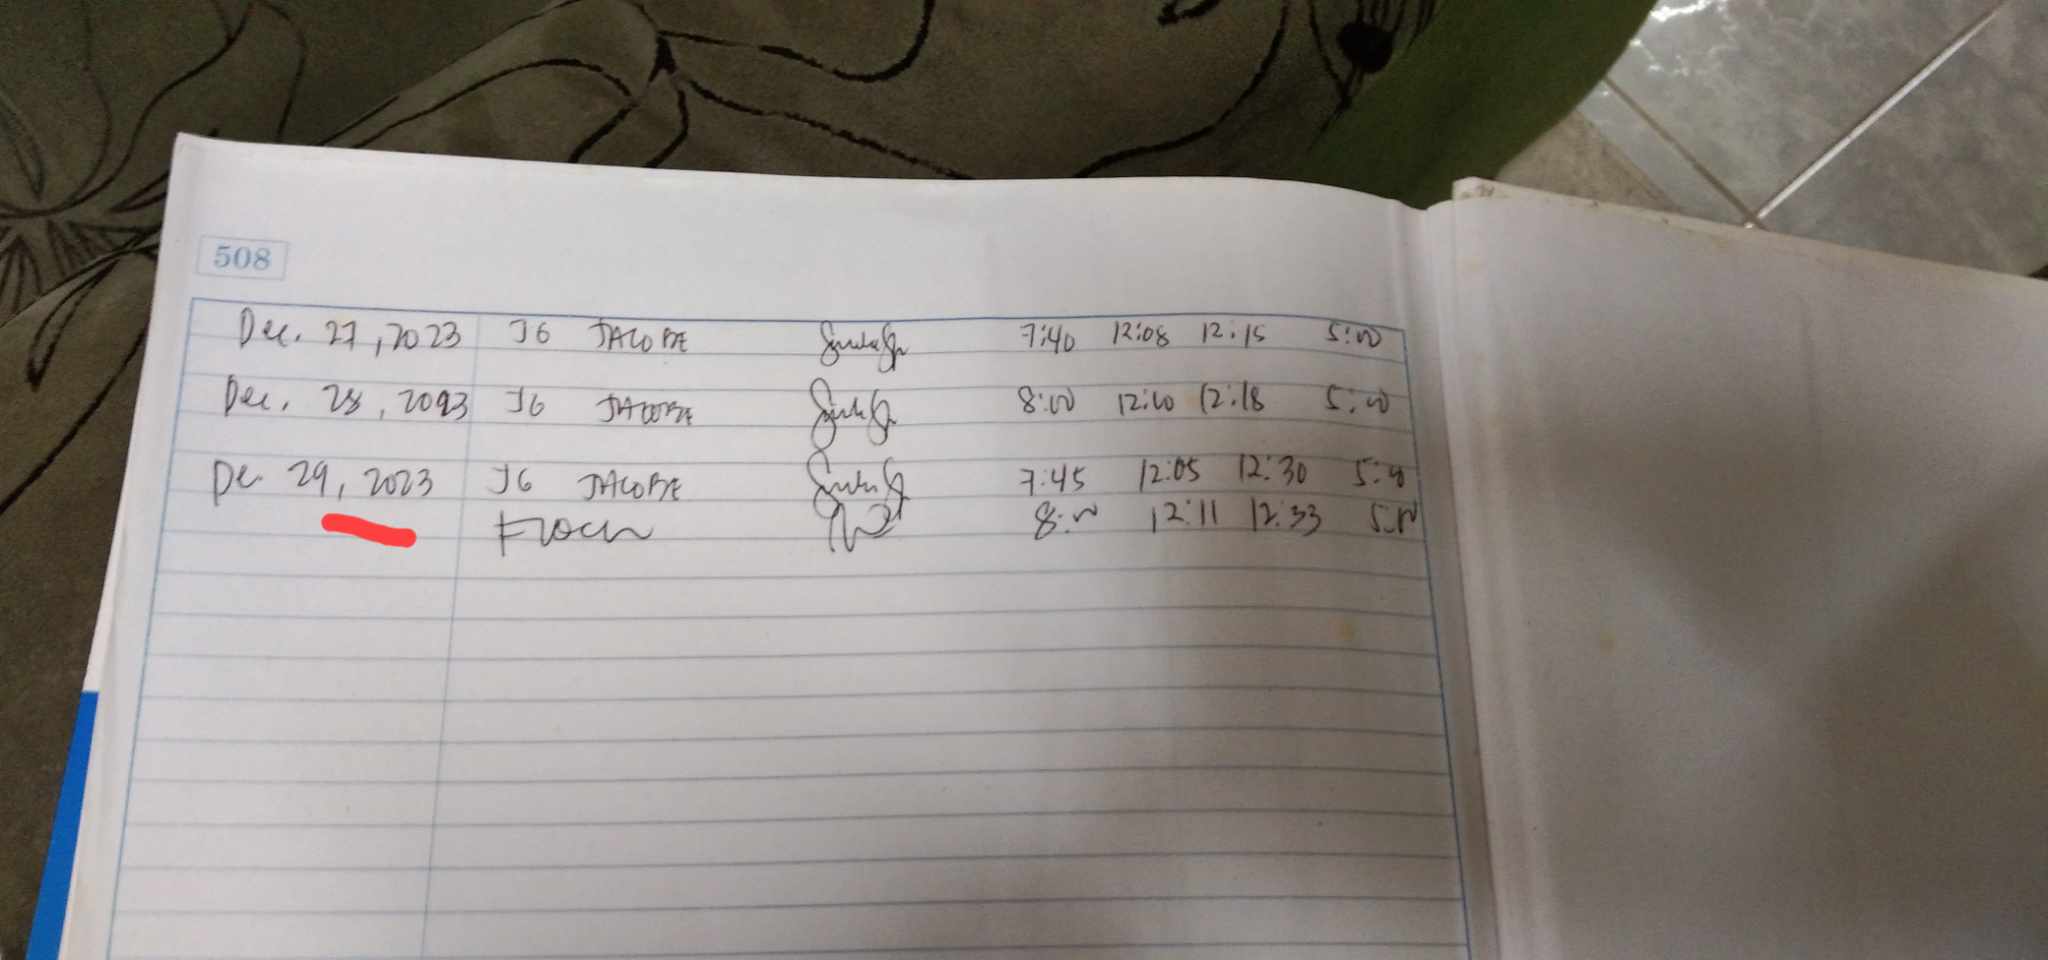 508
Dec. 27, 2023 JG JACOBE 7:40 12:08 12:15 5:00
Dec. 28, 2023 JG JACOBE 8:00 12:10 12:18 5:00
De. 29, 2023 JG JACOBE 7:45 12:05 12:30 5:00
8:00 12:11 12:33 5:00